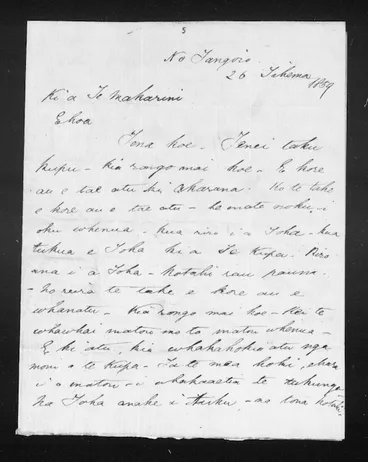 5
No Tangoio
26 Tihema 1859
Ki a Te Makarini
E hoa
Tena koe. Tenei taku
kupu - Kia rongo mai koe - E kore
au e tae atu ki Akarana. Ko te take
e kore au e tae atu - he mate noku i
oku whenua. Kua riro i a Toha - kua
tukua e Toha ki a Te Kupa. Riro
ana i a Toha - kotahi rau pauna.
- No reira te take e kore au e
whanatu - Kia rongo mai koe - Kei te
whawhai matou mo ta matou whenua -
E ki atu, kia whakahokia atu nga
moni o te Kupa - Ta te mea hoki,
i a matou - i whakaaetia te tukunga
Na Toha anake i tuku - ao tona